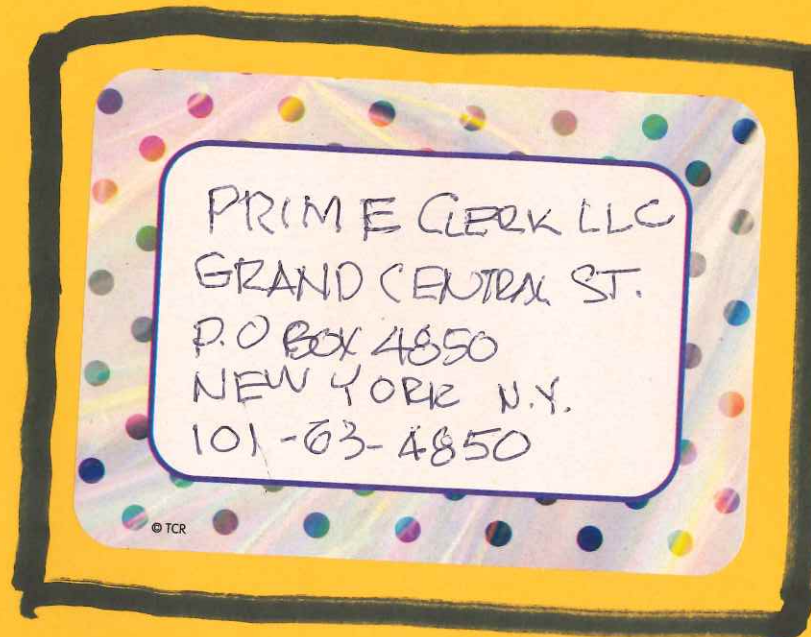 PRIME CLERK LLC
GRAND CENTRAL ST.
P.O BOX 4850
NEW YORK N.Y.
101-63-4850
© TCR